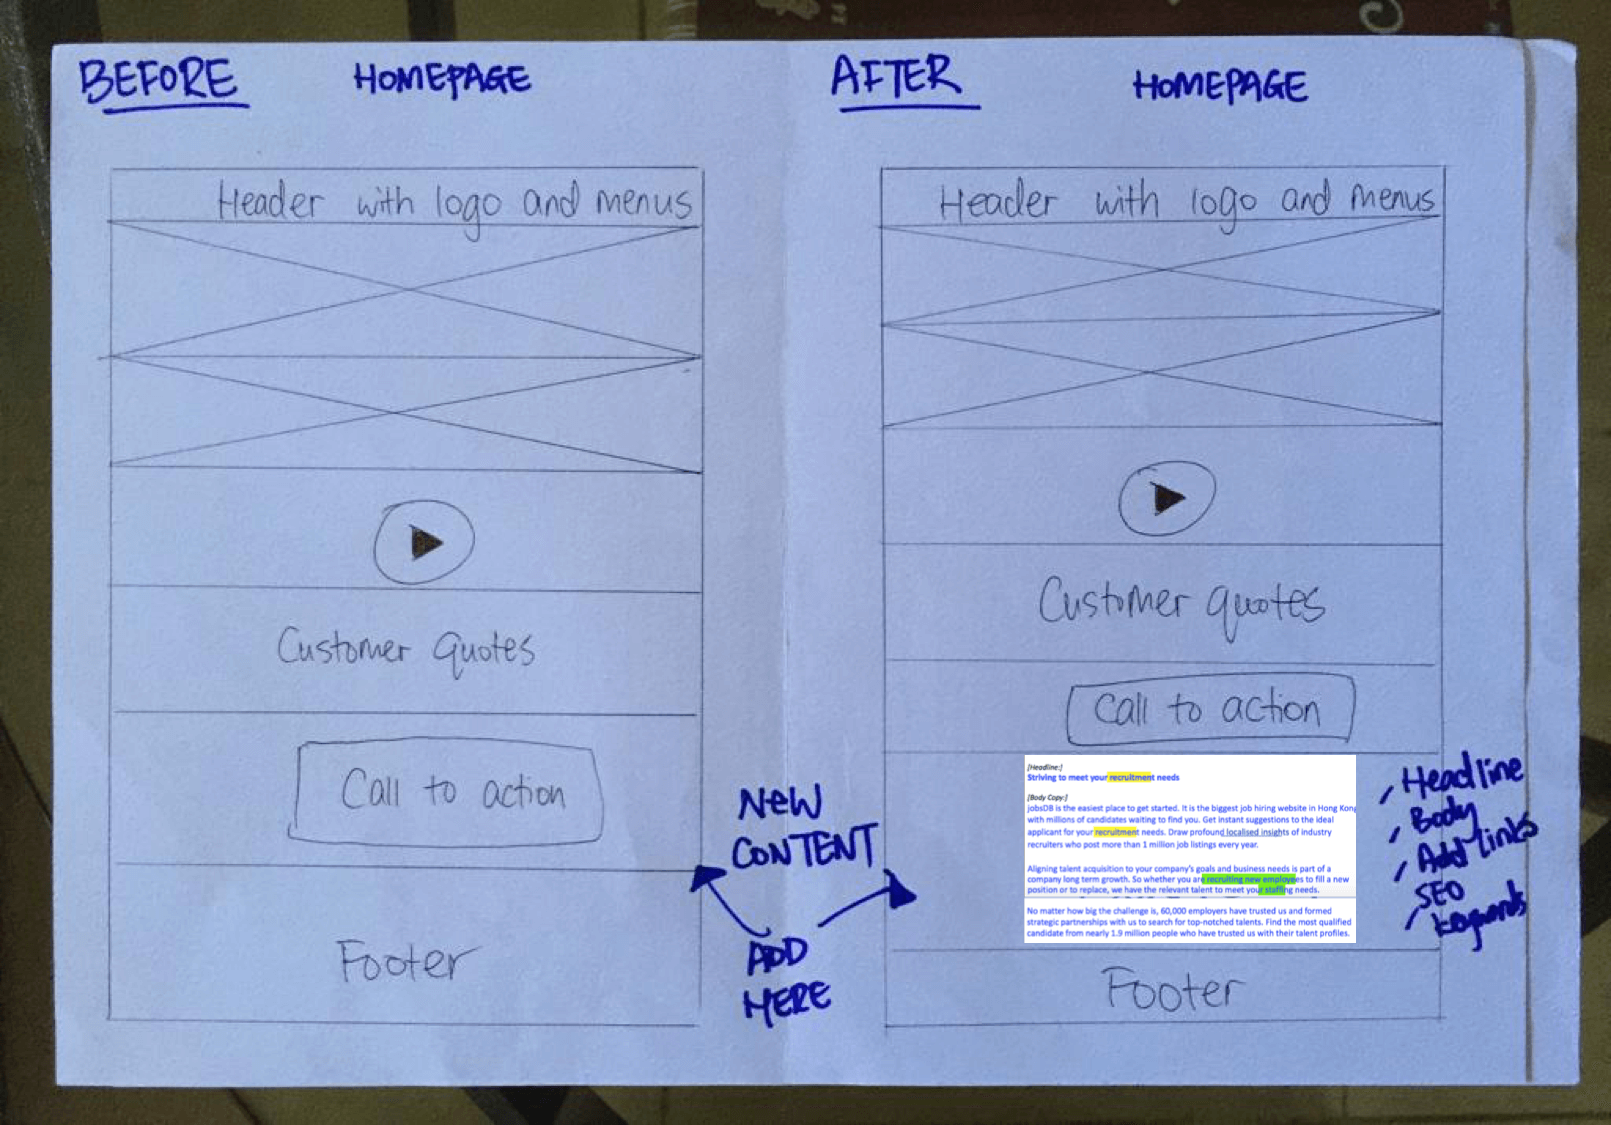 BEFORE
HOMEPAGE
Header with logo and menus
Customer quotes
Call to action
Footer
NEW
CONTENT
ADD
HERE
AFTER
HOMEPAGE
Header with logo and menus
Customer quotes
Call to action
[Headline:]
Striving to meet your recruitment needs
[Body Copy:]
jobsDB is the easiest place to get started. It is the biggest job hiring website in Hong Kong
with millions of candidates waiting to find you. Get instant suggestions to the ideal
applicant for your recruitment needs. Draw profound localised insights of industry
recruiters who post more than 1 million job listings every year.
Aligning talent acquisition to your company's goals and business needs is part of a
company long term growth. So whether you are recruiting new employees to fill a new
position or to replace, we have the relevant talent to meet your staffing needs.
No matter how big the challenge is, 60,000 employers have trusted us and formed
strategic partnerships with us to search for top-notched talents. Find the most qualified
candidate from nearly 1.9 million people who have trusted us with their talent profiles.
Headline
Body
Add links
SEO
keywords
Footer